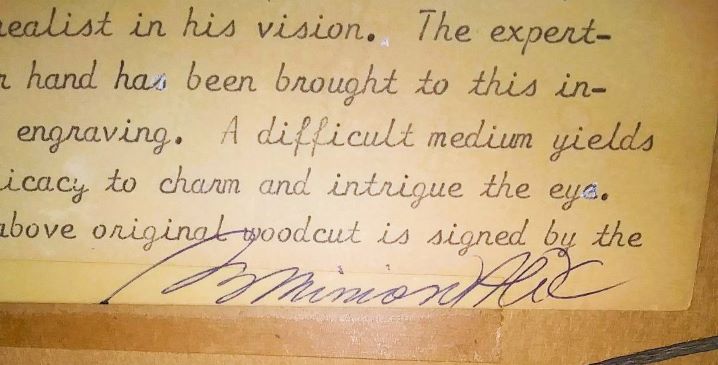 ealist in his vision. The expert-
r hand has been brought to this in-
engraving. A difficult medium yields
icacy to charm and intrigue the eye.
above original woodcut is signed by the